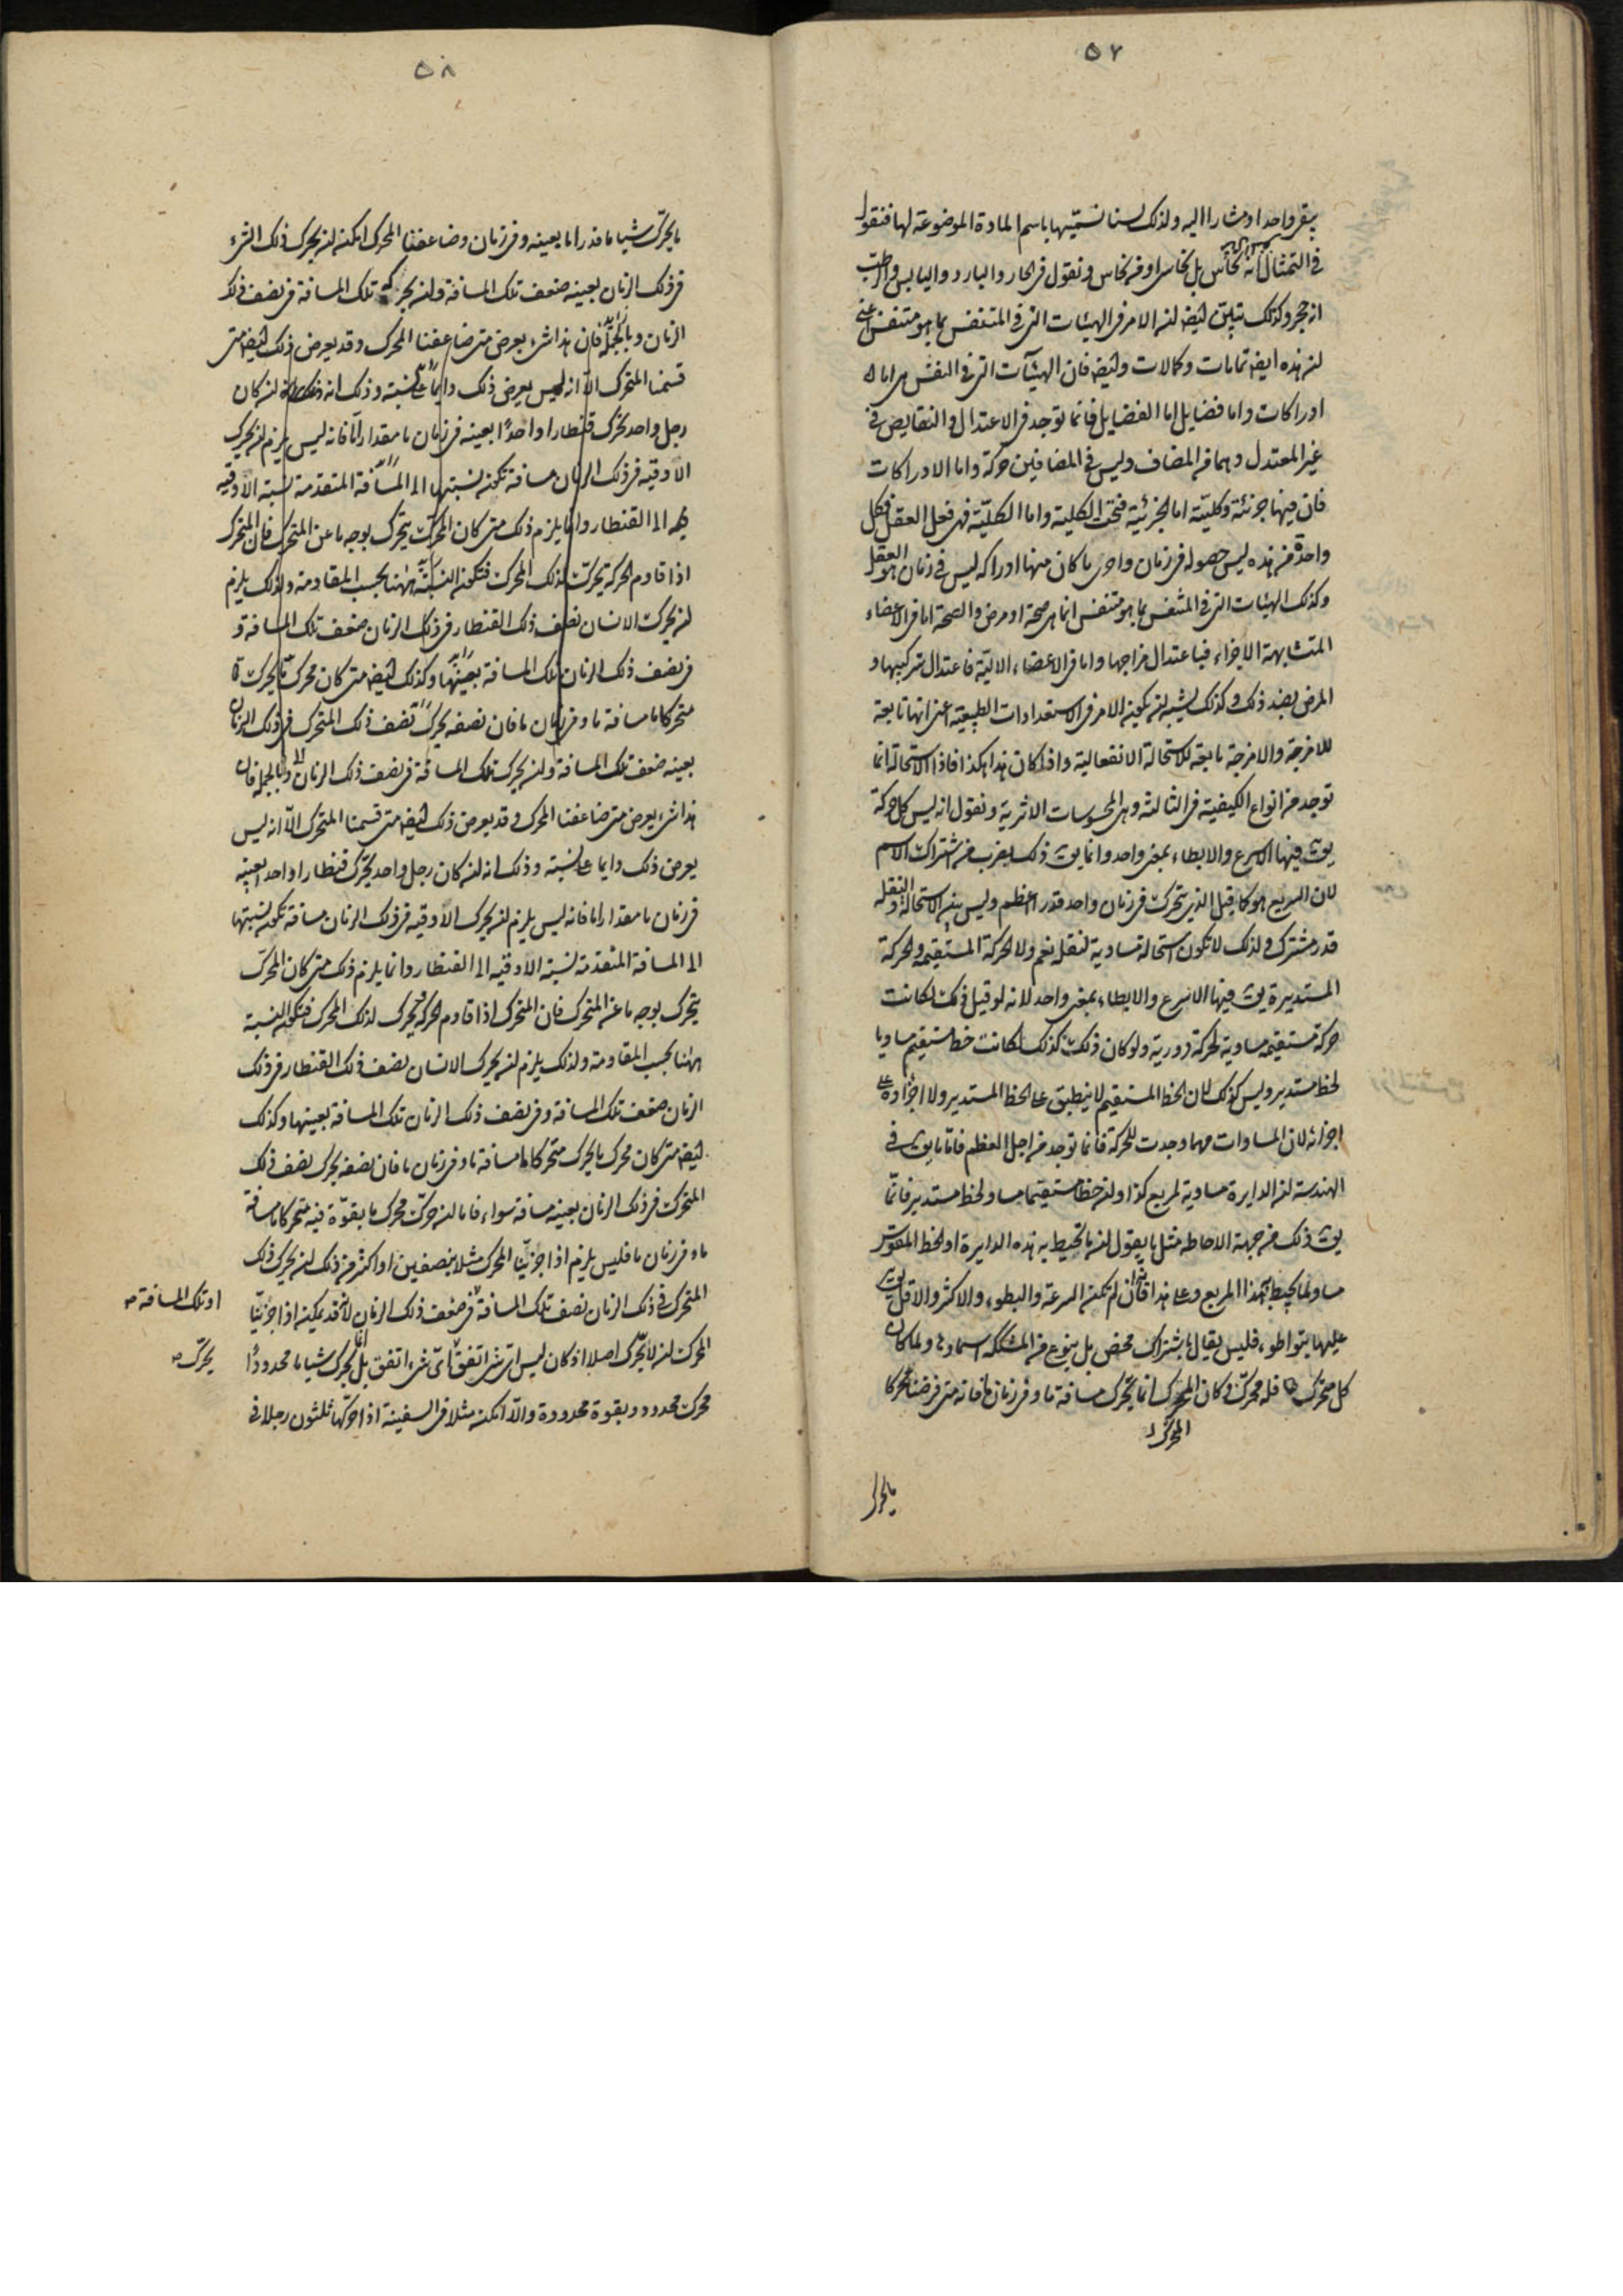 ٥٧
يبقى واحدا ومشارا اليه ولذلك لسنا نسميها باسم المادة الموضوعة لها فنقول
في التمثال انه نحاس بل نحاسي او من نحاس ونقول في الحار والبارد واليابس والرطب
انه حجر وكذلك تبين ايضا ان الامر في الهيئات التي في المتنفس بما هو متنفس اعني
ان هذه ايضا تمامات وكمالات وايضا فان الهيئات التي في النفس هي اما
ادراكات واما فضايل اما الفضايل فانما توجد في الاعتدال والنقايص في
غير المعتدل وهما من المضاف وليس في المضافين حركة واما الادراكات
فان فيها جزئية وكلية اما الجزئية فتحت الكلية واما الكلية فهي فعل العقل فكل
واحدة من هذه ليس حصوله في زمان واحرى ما كان منها ادراكه ليس في زمان وهو العقل
وكذلك الهيئات التي في المتنفس بما هو متنفس انما هي صحة او مرض والصحة اما في الاعضاء
المتشابهة الاجزاء فباعتدال مزاجها واما في الاعضاء الالية فاعتدال تركيبها و
المرض بضد ذلك وكذلك يشبه ان يكون الامر في الاستعدادات الطبيعية اعني انها تابعة
للامزجة والامزجة تابعة للاستحالة الانفعالية واذا كان هذا هكذا فاذا الاستحالة انما
توجد من انواع الكيفية في الثالثة وهي المحسوسات الاثرية ونقول انه ليس كل حركة
يق فيها الاسرع والابطاء بمعنى واحد وانما يق ذلك بضرب من اشتراك الاسم
لان السريع هو كما قيل الذي يتحرك في زمان واحد قدرا اعظم وليس بين الاستحالة والنقلة
قدر مشترك ولذلك لا تكون استحالة مساوية لنقلة نعم ولا الحركة المستقيمة والحركة
المستديرة يق فيها الاسرع والابطاء بمعنى واحد لانه لو قيل ذلك لكانت
حركة مستقيمة مساوية لحركة دورية ولو كان ذلك كذلك لكانت خط مستقيم مساويا
لخط مستدير وليس كذلك لان الخط المستقيم لا ينطبق على الخط المستدير ولا اجزاؤه على
اجزائه لان المساوات مهما وجدت للحركة فانما توجد من اجل العظم فاما ما يق في
الهندسة ان الدايرة مساوية لمربع كذا وان خطا مستقيما مساو لخط مستدير فانما
يق ذلك من جهة الاحاطة مثل ما يقول ان ما تحيط به هذه الدايرة او الخط المقوس
مساو لما يحيط به هذا المربع وعلى هذا فان لم تكن السرعة والبطوء والاكثر والاقل يق
عليها بتواطوء فليس يقال باشتراك محض بل بنوع من المشككة اسماؤها ولما كان
كل متحرك فله محرك وكان المحرك انما يحرك مسافة ما وفي زمان ما فانه متى فرضنا محركا
المحرك
ما يحرك
٥٨
ما يحرك شيا ما قدرا ما بعينه وفي زمان وضاعفنا المحرك امكنه ان يحرك ذلك الشيء
في ذلك الزمان بعينه ضعف تلك المسافة وان يحركه تلك المسافة في نصف ذلك
الزمان وبالجملة فان هذا شيء يعرض متى ضاعفنا المحرك وقد يعرض ذلك ايضا متى
قسمنا المتحرك الا انه ليس يعرض ذلك دايما على نسبة وذلك انه ان كان
رجل واحد يحرك قنطارا واحدا بعينه في زمان ما مقدارا ما فانه ليس يلزم ان يحرك
الاوقية في ذلك الزمان مسافة تكون نسبتها الى المسافة المتقدمة نسبة الاوقية
الى القنطار وانما يلزم ذلك متى كان المحرك يتحرك بوجه ما عن المتحرك فان المتحرك
اذا قاوم الحركة تحرك لذلك المحرك فتكون النسبة ههنا بحسب المقاومة ولذلك يلزم
ان يحرك الانسان نصف ذلك القنطار في ذلك الزمان ضعف تلك المسافة و
في نصف ذلك الزمان تلك المسافة بعينها وكذلك ايضا متى كان محرك ما يحرك
متحركا ما مسافة ما وفي زمان ما فان نصفه يحرك نصف ذلك المتحرك في ذلك الزمان
بعينه ضعف تلك المسافة وان يحرك تلك المسافة في نصف ذلك الزمان وبالجملة فان
هذا شيء يعرض متى ضاعفنا المحرك وقد يعرض ذلك ايضا متى قسمنا المتحرك الا انه ليس
يعرض ذلك دايما على نسبة وذلك انه ان كان رجل واحد يحرك قنطارا واحدا بعينه
في زمان ما مقدارا ما فانه ليس يلزم ان يحرك الاوقية في ذلك الزمان مسافة تكون نسبتها
الى المسافة المتقدمة نسبة الاوقية الى القنطار وانما يلزم ذلك متى كان المحرك
يتحرك بوجه ما عن المتحرك فان المتحرك اذا قاوم الحركة تحرك لذلك المحرك فتكون النسبة
ههنا بحسب المقاومة ولذلك يلزم ان يحرك الانسان نصف ذلك القنطار في ذلك
الزمان ضعف تلك المسافة وفي نصف ذلك الزمان تلك المسافة بعينها وكذلك
ايضا متى كان محرك ما يحرك متحركا ما مسافة ما وفي زمان ما فان نصفه يحرك نصف ذلك
المتحرك في ذلك الزمان بعينه مسافة سواء فاما ان حرك محرك ما بقوة فيه متحركا ما مسافة
ما وفي زمان ما فليس يلزم اذا جزئنا المحرك مثلا بنصفين او اكثر من ذلك ان يحرك ذلك
المتحرك في ذلك الزمان نصف تلك المسافة في ضعف ذلك الزمان لانه قد يمكن اذا جزئنا
او تلك المسافة صح
المحرك ان لا يحرك اصلا اذ كان ليس اي شيء اتفق اي شيء اتفق بل انما يحرك شيا ما محدودا
يحرك صح
محرك محدود وبقوة محدودة والا امكن مثلا في السفينة اذا حركها ثلثون رجلا في